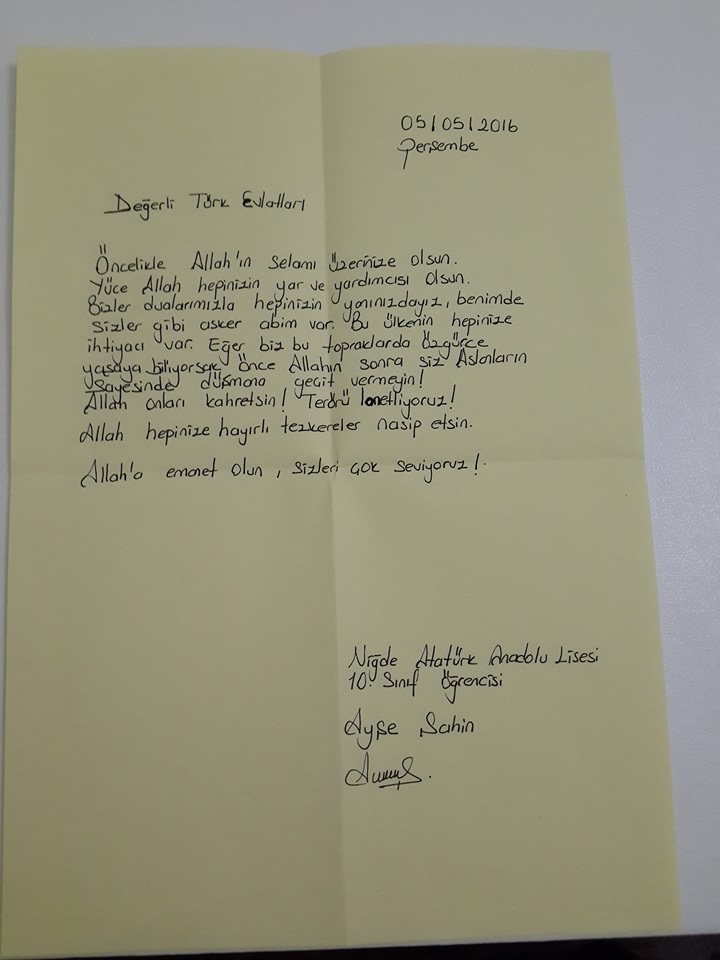 05/05/2016
Perşembe
Değerli Türk Evlatları
Öncelikle Allah'ın Selamı üzerinize olsun.
Yüce Allah hepinizin yar ve yardımcısı olsun.
Bizler dualarımızla hepinizin yanınızdayız, benimde
sizler gibi asker abim var. Bu ülkenin hepinize
ihtiyacı var. Eğer biz bu topraklarda özgürce
yaşaya biliyorsak önce Allahın sonra siz Aslanların
sayesinde düşmana geçit vermeyin!
Allah onları kahretsin! Terörü lanetliyoruz!
Allah hepinize hayırlı tezkereler nasip etsin.
Allah'a emanet olun, sizleri çok seviyoruz!
Niğde Atatürk Anadolu Lisesi
10. Sınıf Öğrencisi
Ayşe Şahin